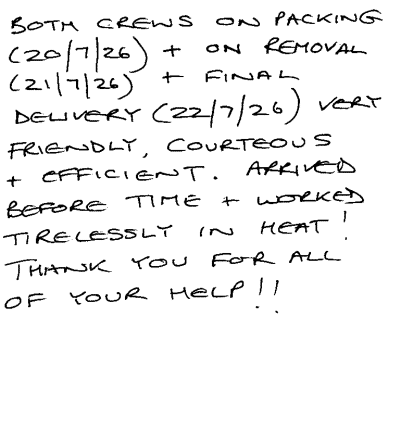 BOTH CREWS ON PACKING
(20/7/26) + ON REMOVAL
(21/7/26) + FINAL
DELIVERY (22/7/26) VERY
FRIENDLY, COURTEOUS
+ EFFICIENT. ARRIVED
BEFORE TIME + WORKED
TIRELESSLY IN HEAT!
THANK YOU FOR ALL
OF YOUR HELP!!